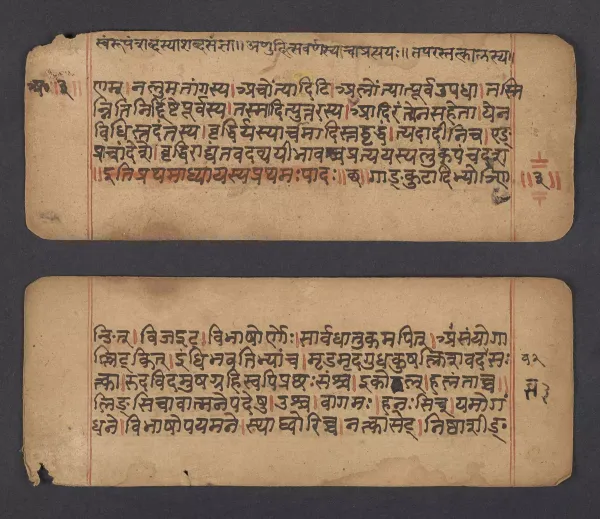 स्वंरूपंशब्दस्याशब्दसंज्ञा॥ अणुदित्सवर्णस्यचाप्रत्ययः॥ तपरस्तत्कालस्य॥
नलुमतांगस्य। अचोंत्यादिटि। अलोंत्यात्पूर्वउपधा। तस्मि
न्नितिनिर्द्दिष्टेपूर्वस्य। तस्मादित्युत्तरस्य। आदिरंत्येनसहेता। येन
विधिस्तदंतस्य। वृद्धिर्यस्याचमादिस्तद्वृद्धं। त्यदादीनिच। एङ्
प्राचांदेशे। वृद्धिराद्यंतवदव्ययीभावश्चप्रत्ययस्यलुक्पंचदश॥
॥इतिप्रथमाध्यायस्यप्रथमःपादः॥ छ॥ गाङ्कुटादिभ्योञ्णि
॥३॥
न्ङित्। विजइट्। विभाषोर्णोः। सार्वधातुकमपित्। असंयोगा
ल्लिट्कित्। इंधिभवतिभ्यांच। मृडमृदगुधकुषक्लिशवदवसः
त्का। रुदविदमुषग्रहिस्वपिप्रछःसंश्च। इकोझल्। हलंताच्च।
लिङ्सिचावात्मनेपदेषु। उश्च। वागमः। हनःसिच्। यमोगं
धने। विभाषोपयमने। स्थाघ्वोरिच्च। नत्कासेट्। निष्ठाशीङ्